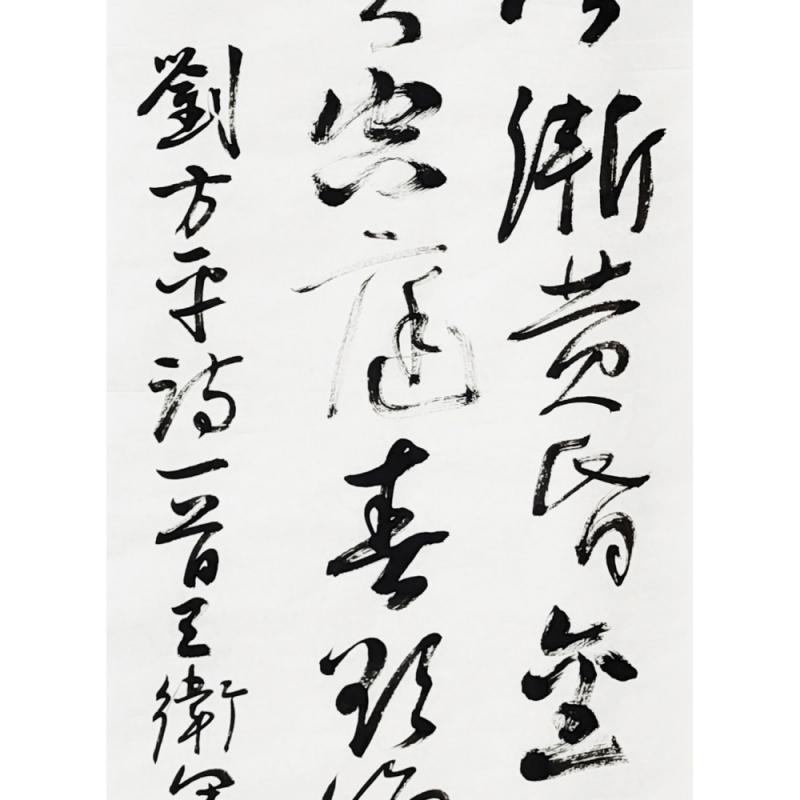 漸黄昏金
空庭春欲
劉方平詩一首王衛